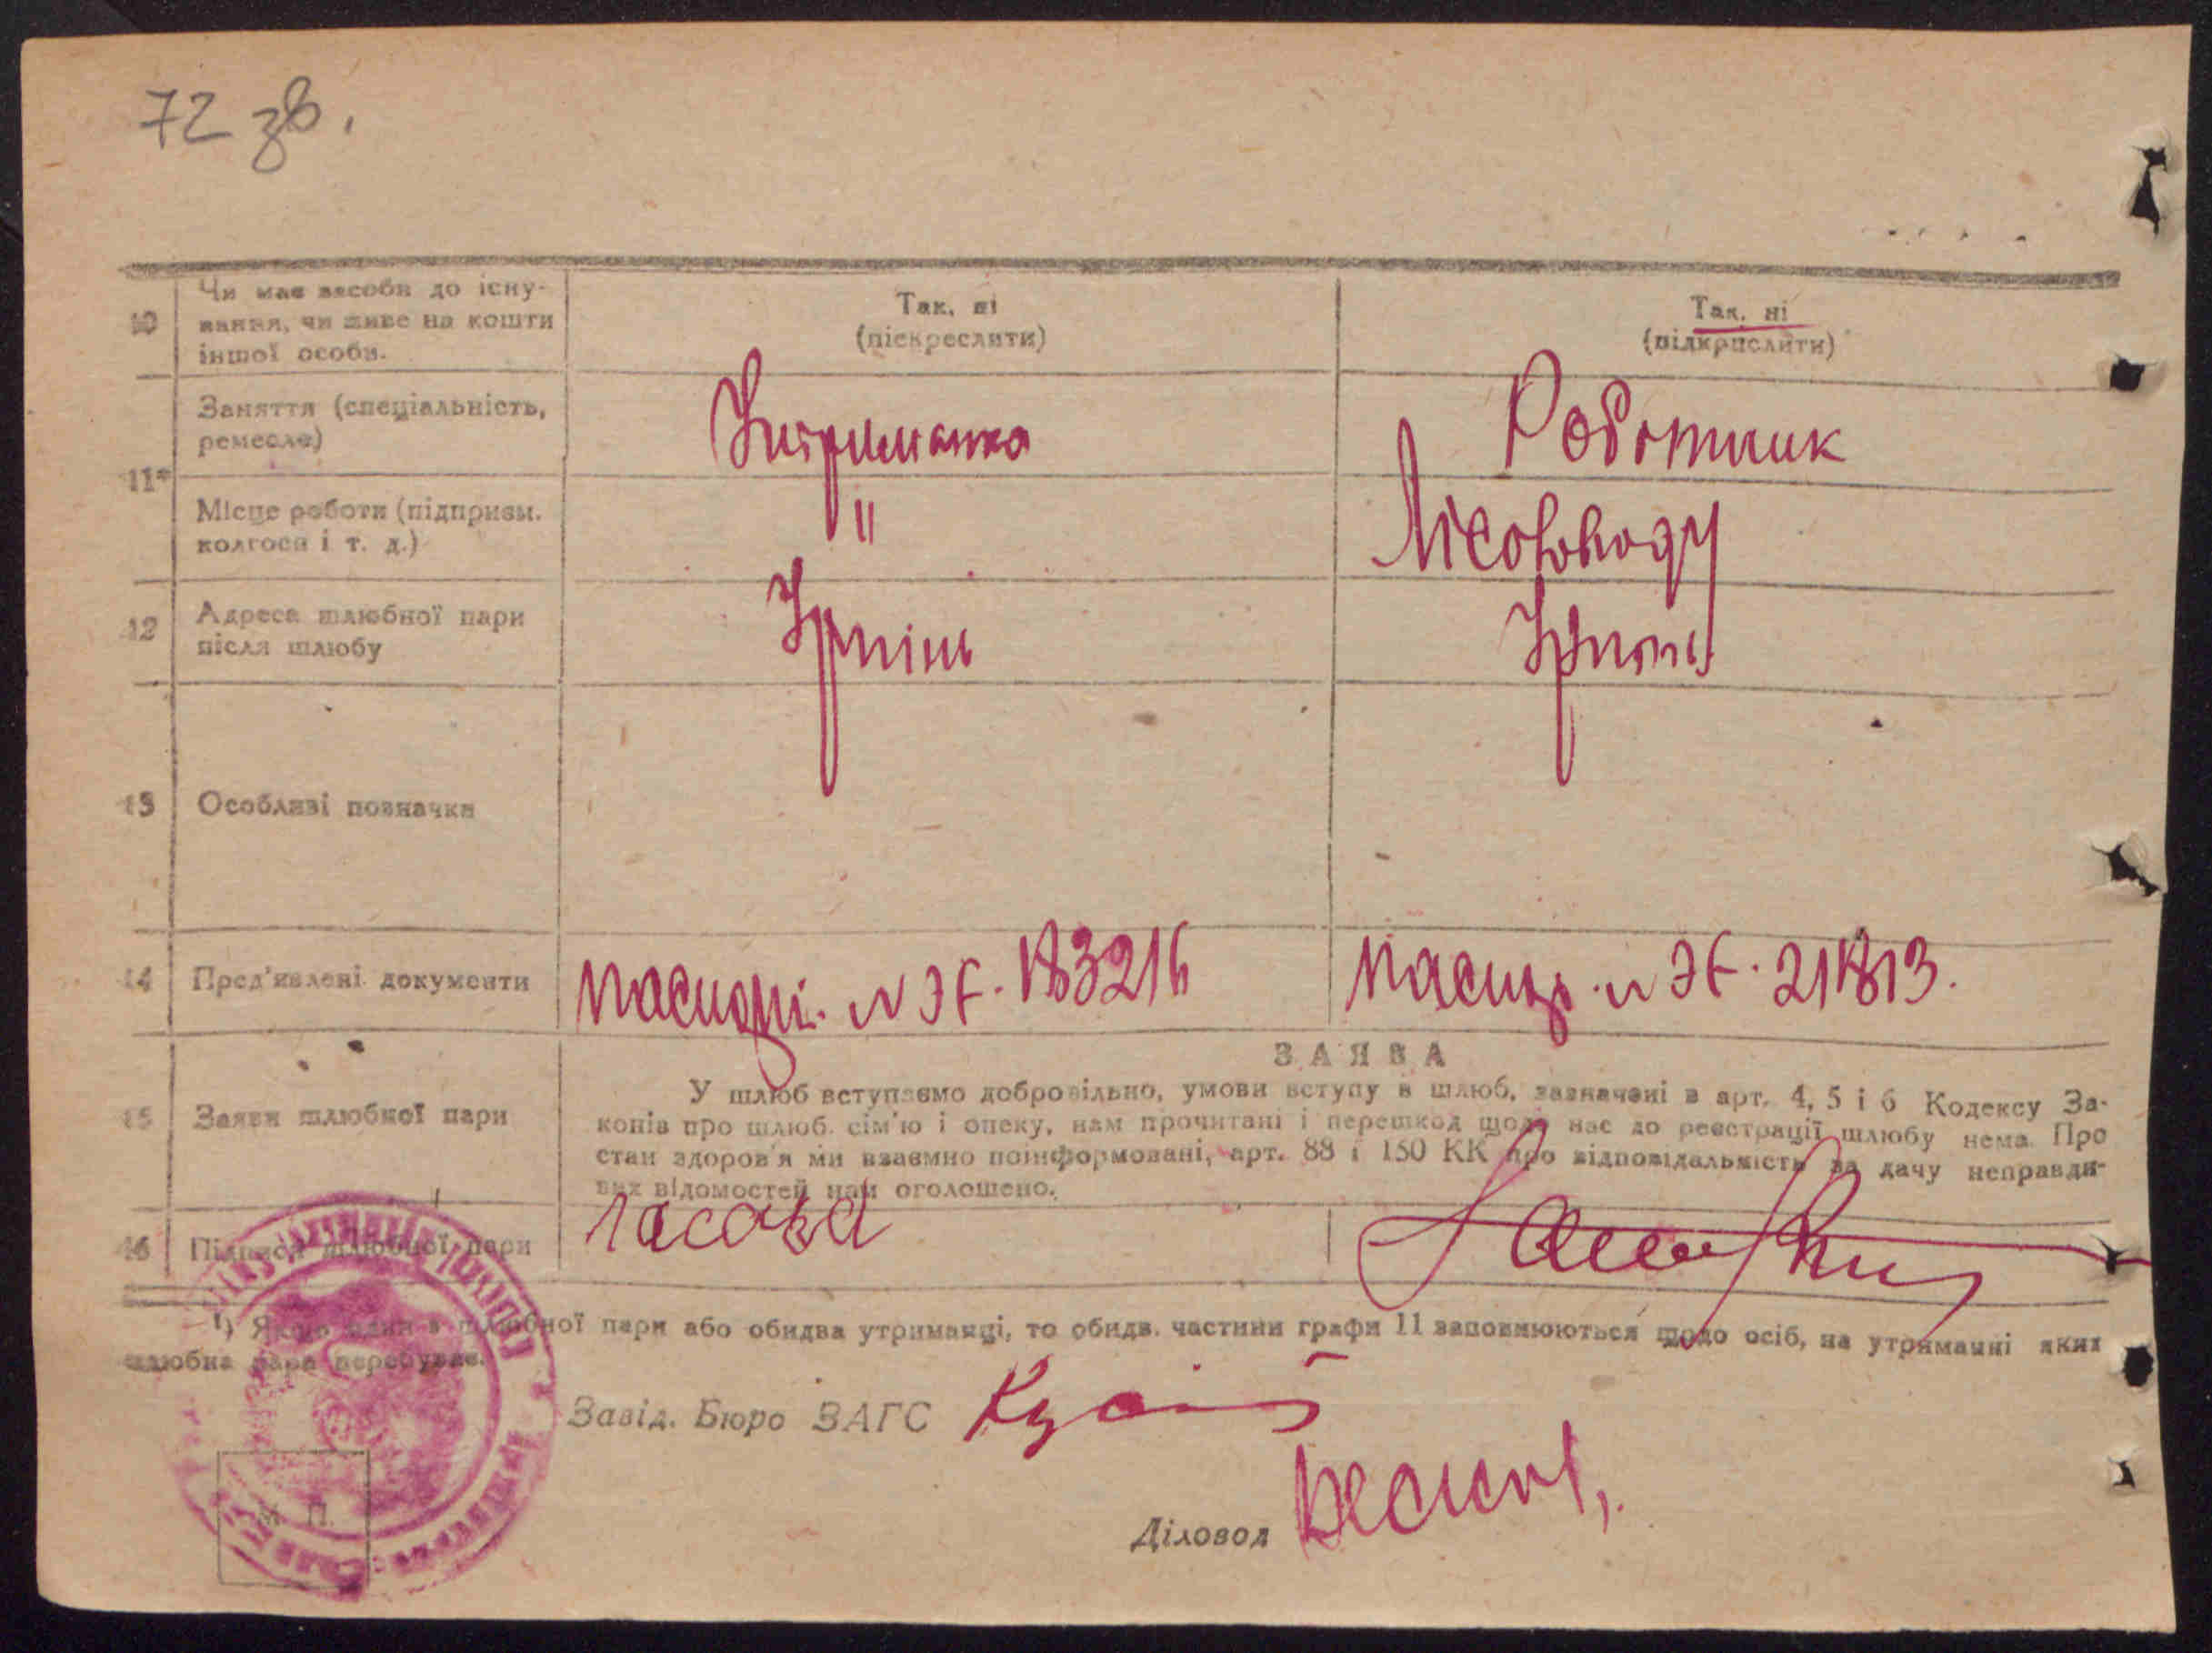 72 зв.
10
Чи має засоби до існу-
вання, чи живе на кошти
іншої особи.
Так, ні
(піскреслити)
Так, ні
(підкрислити)
11*
Заняття (спеціальність,
ремесло)
Утриманка
Роботник
Місце роботи (підприєм.
колгосп і т. д.)
"
12
Адреса шлюбної пари
після шлюбу
Ірпінь
Ірпінь
13
Особливі позначки
14
Пред'явлені документи
паспорт. № ЭЄ. 183216
паспор. № ЭЄ. 211813.
15
Заяви шлюбної пари
ЗАЯВА
У шлюб вступаємо добровільно, умови вступу в шлюб, зазначені в арт. 4, 5 і 6 Кодексу За-
конів про шлюб. сім'ю і опеку, нам прочитані і перешкод щодо нас до реєстрації шлюбу нема. Про
стан здоров'я ми взаємно поінформовані, арт. 88 і 150 КК про відповідальність за дачу неправди-
вих відомостей нам оголошено.
16
Підписи шлюбної пари
1) Якщо один з шлюбної пари або обидва утриманці, то обидв. частини графи 11 заповнюються щодо осіб, на утриманні яких
шлюбна пара перебуває.
Завід. Бюро ЗАГС
Діловод
М. П.